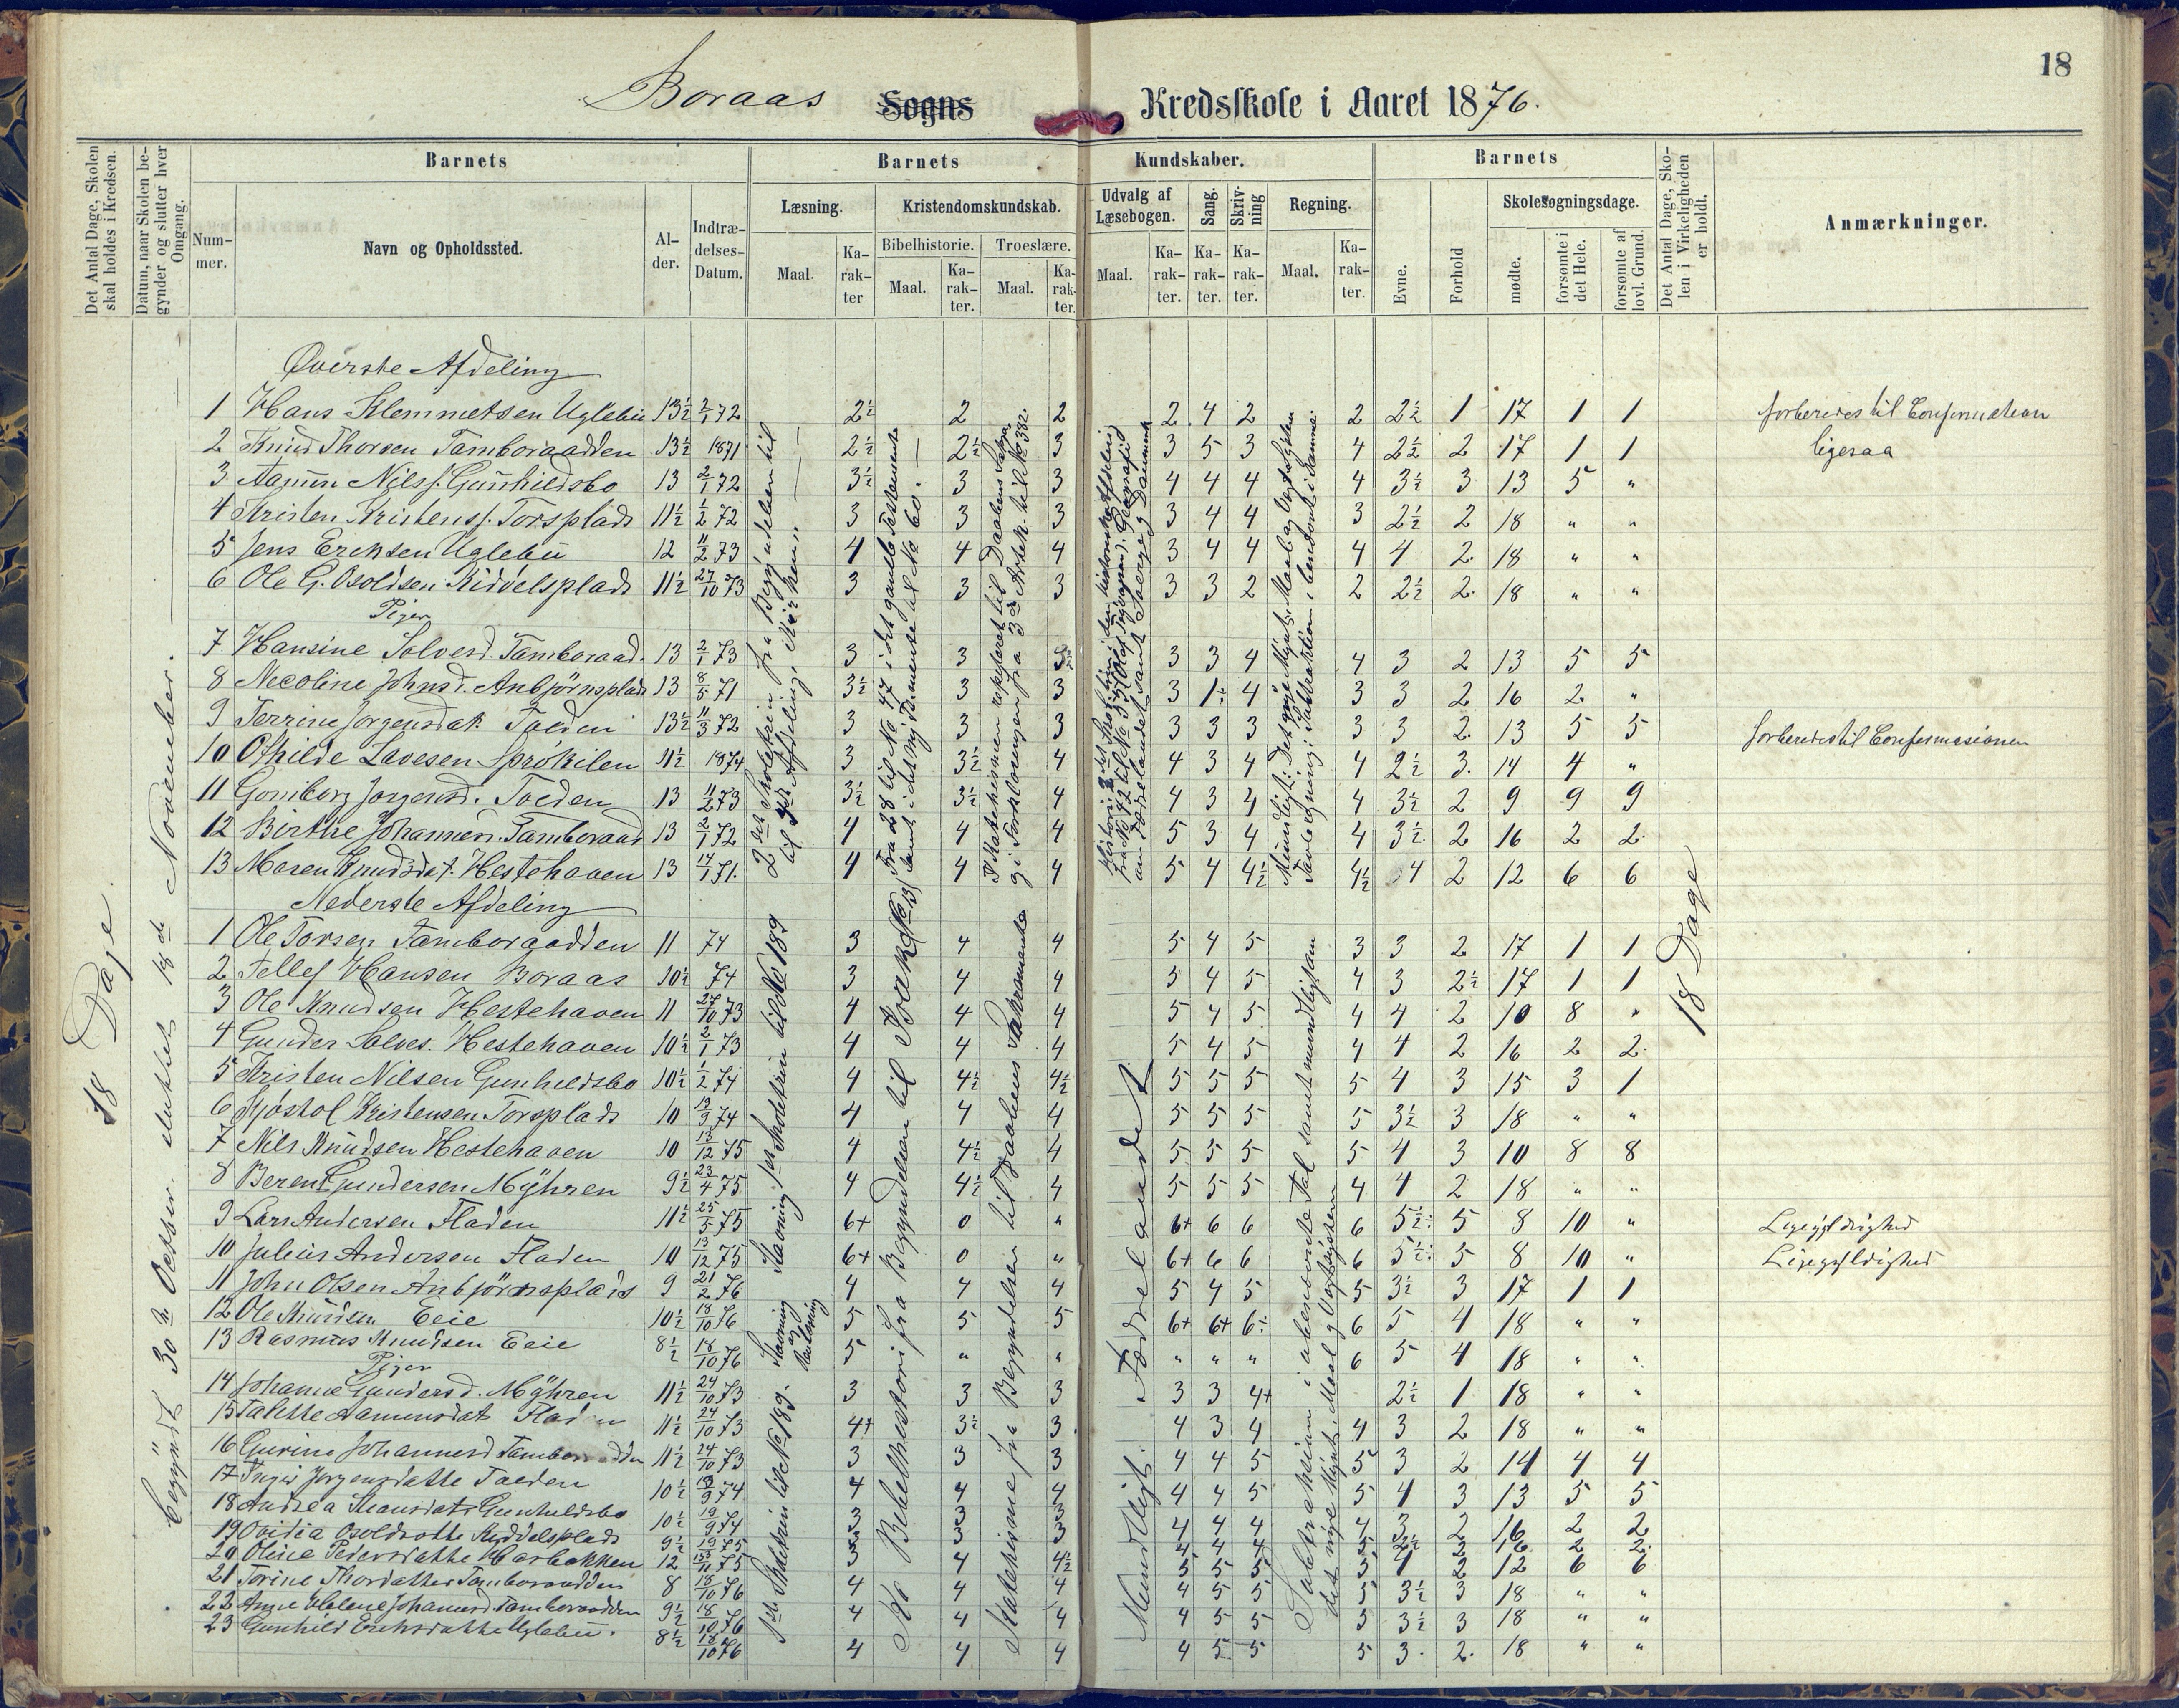 18
Boraas Sogns Kredsskole i Aaret 1876.
Det Antal Dage, Skolen skal holdes i Kredsen.
Datum, naar Skolen begynder og slutter hver Omgang.
Barnets
Barnets Kundskaber.
Barnets
Det Antal Dage, Skolen i Virkeligheden er holdt.
Anmærkninger.
Nummer.
Navn og Opholdssted.
Alder.
Indtrædelses-Datum.
Læsning.
Kristendomskundskab.
Udvalg af Læsebogen.
Sang.
Skrivning
Regning.
Evne.
Forhold
Skolesøgningsdage.
Bibelhistorie.
Troeslære.
mødte.
forsømte i det Hele.
forsømte af lovl. Grund.
Maal.
Karakter
Maal.
Karakter.
Maal.
Karakter.
Maal.
Karakter.
Karakter.
Karakter.
Maal.
Karakter.
18 Dage
begyndt 30te October sluttet 18de November.
Øverste Afdeling
1 Hans Klemmetsen Uglebu 13½ 2/1 72 2½ 2 2 2 4 2 2 2½ 1 17 1 1 forberedes til Confirmation
2 Knud Thorsen Tamboraadden 13½ 1871 2½ 2½ 3 3 5 3 4 2½ 2 17 1 1 ligesaa
3 Aamun Nilss. Gunhildsbo 13 2/1 72 3½ 3 3 4 4 4 4 3½ 3 13 5 "
4 Kristen Kristenss. Torsplads 11½ 1/2 72 3 3 3 3 4 4 3 2½ 2 18 " "
5 Jens Eriksen Uglebu 12 11/2 73 4 4 4 3 4 4 4 4 2 18 " "
6 Ole G. Osoldsen Kiddelsplads 11½ 27/10 73 3 3 3 3 3 2 2 2½ 2 18 " "
Piger
7 Hansine Solvesd. Tamboraad. 13 2/1 73 3 3 3 3 3 4 4 3 2 13 5 5
8 Necoline Johnsd. Anbjörnsplads 13 8/5 71 3½ 3 3 3 1÷ 4 3 3 2 16 2 "
9 Terrine Jorgensdat. Toeden 13½ 11/3 72 3 3 3 3 3 3 3 3 2 13 5 5 forberedes til Confirmasionen
10 Othilde Lavesen Sprökilen 11½ 1874 3 3½ 4 4 3 4 4 2½ 3 14 4 "
11 Gomborg Jorgensd. Toeden 13 11/2 73 3½ 3½ 4 4 3 4 4 3½ 2 9 9 9
12 Birthe Johannesn. Tamboraad 13 2/1 72 4 4 4 5 3 4 4 3½ 2 16 2 2
13 Maren Knudsdat. Hestehaven 13 14/1 71. 4 4 4 5 4 4½ 4½ 4 2 12 6 6
Nederste Afdeling
1 Ole Torsen Tamboraadden 11 74 3 4 4 5 4 5 3 3 2 17 1 1
2 Tellef Hansen Boraas 10½ 74 3 4 4 5 4 5 4 3 2½ 17 1 1
3 Ole Knudsen Hestehaven 11 27/10 73 4 4 4 5 4 5 4 4 2 10 8 "
4 Gunder Solves. Hestehaven 10½ 2/1 73 4 4 4 5 4 5 4 4 2 16 2 2
5 Kristen Nilsen Gunhildsbo 10½ 1/2 74 4 4½ 4½ 5 5 5 5 4 3 15 3 1
6 Kjöstol Kristensen Torsplads 10 19/9 74 4 4 4 5 5 5 5 3½ 3 18 " "
7 Nils Knudsen Hestehaven 10 13/12 75 4 4½ 4 5 5 5 5 4 3 10 8 8
8 Berent Gundersen Myhren 9½ 23/4 75 4 4½ 4 5 5 5 4 4 2 18 " "
9 Lars Andersen Fladen 11½ 25/5 75 6+ 0 " 6+ 6 6 6 5½÷ 5 8 10 " Ligegyldighed
10 Julius Andersen Fladen 10 13/12 75 6+ 0 " 6+ 6 6 6 5½÷ 5 8 10 " Ligegyldighed
11 John Olsen Anbjörnsplads 9 21/2 76 4 4 4 5 4 5 5 3½ 3 17 1 1
12 Ole Knudsen Eeie 10½ 18/10 76 5 5 5 6+ 6+ 6÷ 6 5 4 18 " "
13 Rasmus Knudsen Eeie 8½ 18/10 76 5 " " " " " 6 5 4 18 " "
Piger
14 Johanne Gundersd. Myhren 11½ 24/10 73 3 3 3 3 3 4+ 2½ 1 18 " "
15 Talette Aamunsdat Fladen 11½ 24/10 73 4+ 3½ 3 4 3 4 4 3 2 18 " "
16 Gurine Johannesd Tamboraadden 11½ 24/10 73 3 3 3 4 4 5 5 3 2 14 4 4
17 Inger Jorgensdatte Toeden 10½ 19/9 74 4 4 4 4 4 5 5 4 3 13 5 5
18 Andrea Gunhildsbo 10½ 19/9 74 3 3 3 4 4 4 4 3 2 16 2 2
19 Ovidia Osoldsdatte Kiddelsplads 9½ 19 75 3 3 3 4 4 4 5 2½ 2 16 2 2
20 Oline Pedersdatte Harbakken 12 75 5 4 4½ 5 5 5 5 4 2 12 6 6
21 Torine Thorsdatter Tamboraadden 8 18/10 76 4 4 4 4 5 5 5 3½ 3 18 " "
22 Anne Helene Johannesd. Tamboraadden 9½ 18/10 76 4 4 4 4 5 5 5 3½ 3 18 " "
23 Gunhild Eriksdatte Uglebu. 8½ 18/10 76 4 4 4 4 5 5 5 3 2 18 " "
2det Skoletrin fra Begyndelsen til
til 4de Afdeling
Fra 28 til No 47 i det gamle Testamente
samt i det ny Testamente til No 60.
Historie:
Fædrelandet samt Sverrig og Danmark
Mundtligt: Det nye Mynt, Maal og Vegtsystem
Tavleregning: Subtraktion i benevnt i samme.
1ste Skoletrin til No 189.
Stavning 1ste Skoletrin til No 189
Stavning og Renlesning
Ko Bibelhestori fra Begyndelsen til Isak (No 13)
Katekisme fra Begyndelsen til Daabens Sakramente
Mundtligt. Fædrelandet
Subtraktion i ubenevnte Tal samt mundtligt om
det nye Mynt, Maal og Vegtsystem
18 Dage